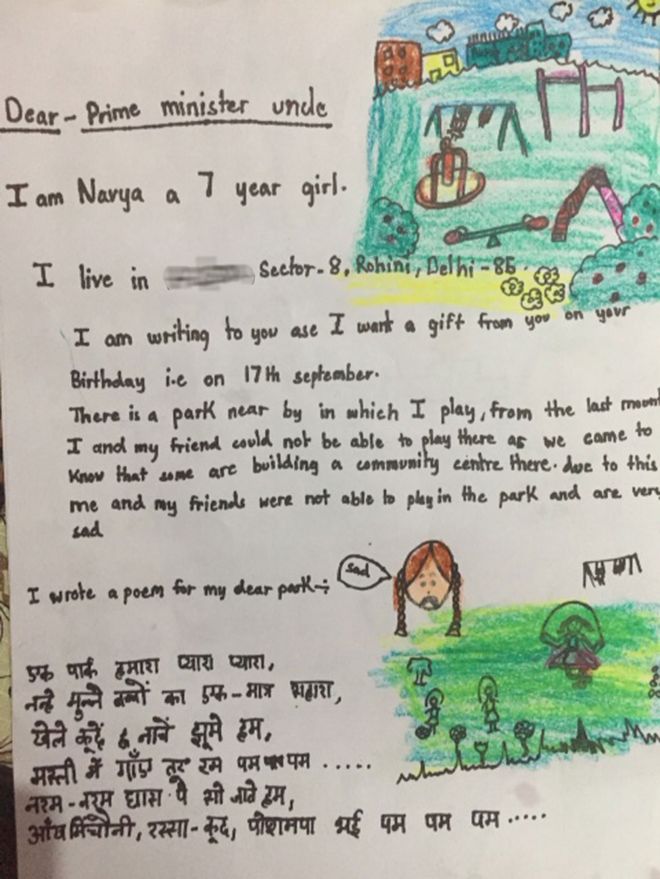 Dear - Prime minister uncle
I am Navya a 7 year girl.
I live in Sector-8, Rohini, Delhi - 85
I am writing to you ase I want a gift from you on your
Birthday i.e on 17th september.
There is a park near by in which I play, from the last mount
I and my friend could not be able to play there as we came to
know that some are building a community centre there. due to this
me and my friends were not able to play in the park and are very
sad
sad
I wrote a poem for my dear park :-
एक पार्क हमारा प्यारा प्यारा,
नन्हे मुन्ने बच्चों का एक-मात्र सहारा,
खेले कूदें नाचें झूमे हम,
मस्ती में गाँए रम पम पम .....
नरम-नरम घास पे सो जावे हम,
आँख मिचौनी, रस्सा-कूद, पोशमपा भई पम पम पम .....